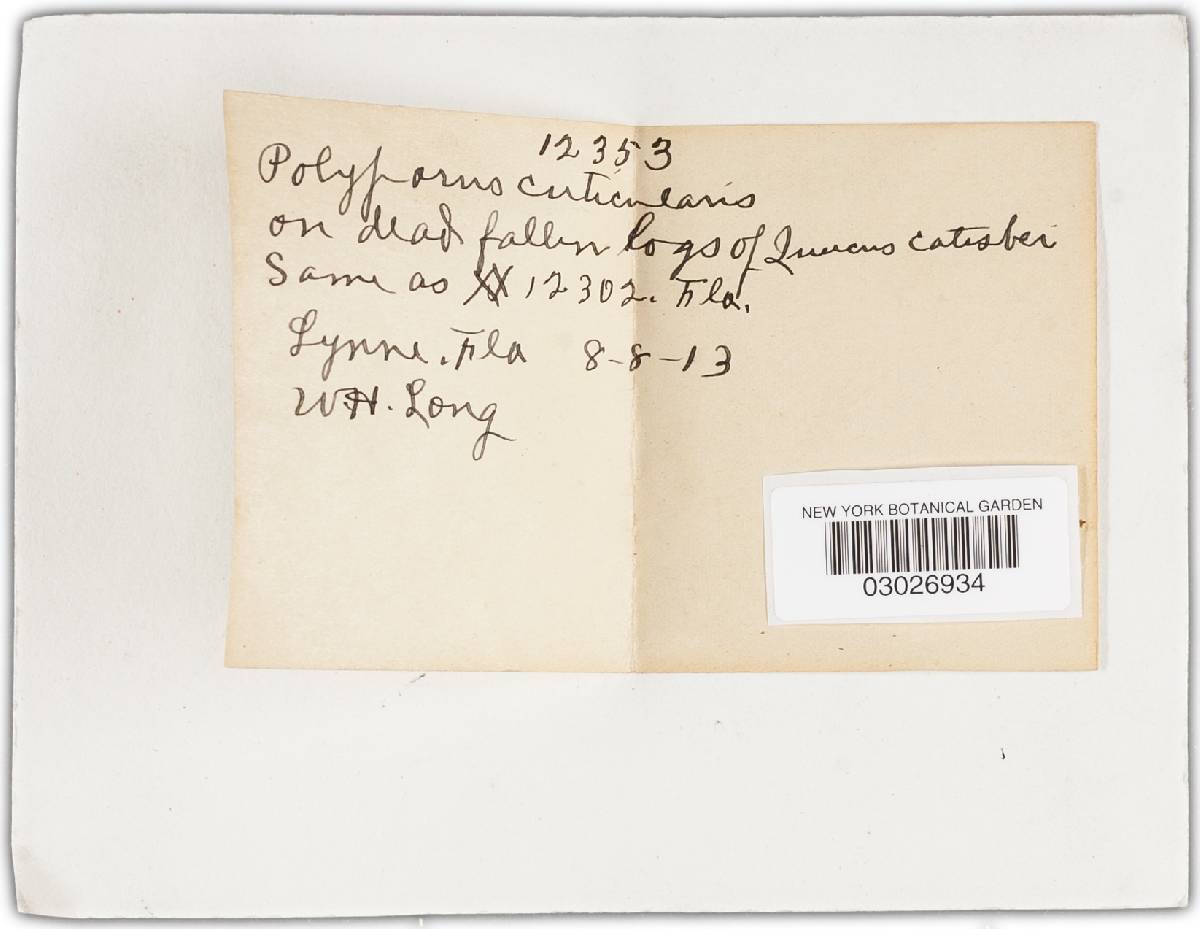 12353
Polyporus cuticularis
on dead fallen logs of Quercus catesbei
Same as 12302. Fla.
Lynne, Fla 8-8-13
W.H. Long
NEW YORK BOTANICAL GARDEN
03026934